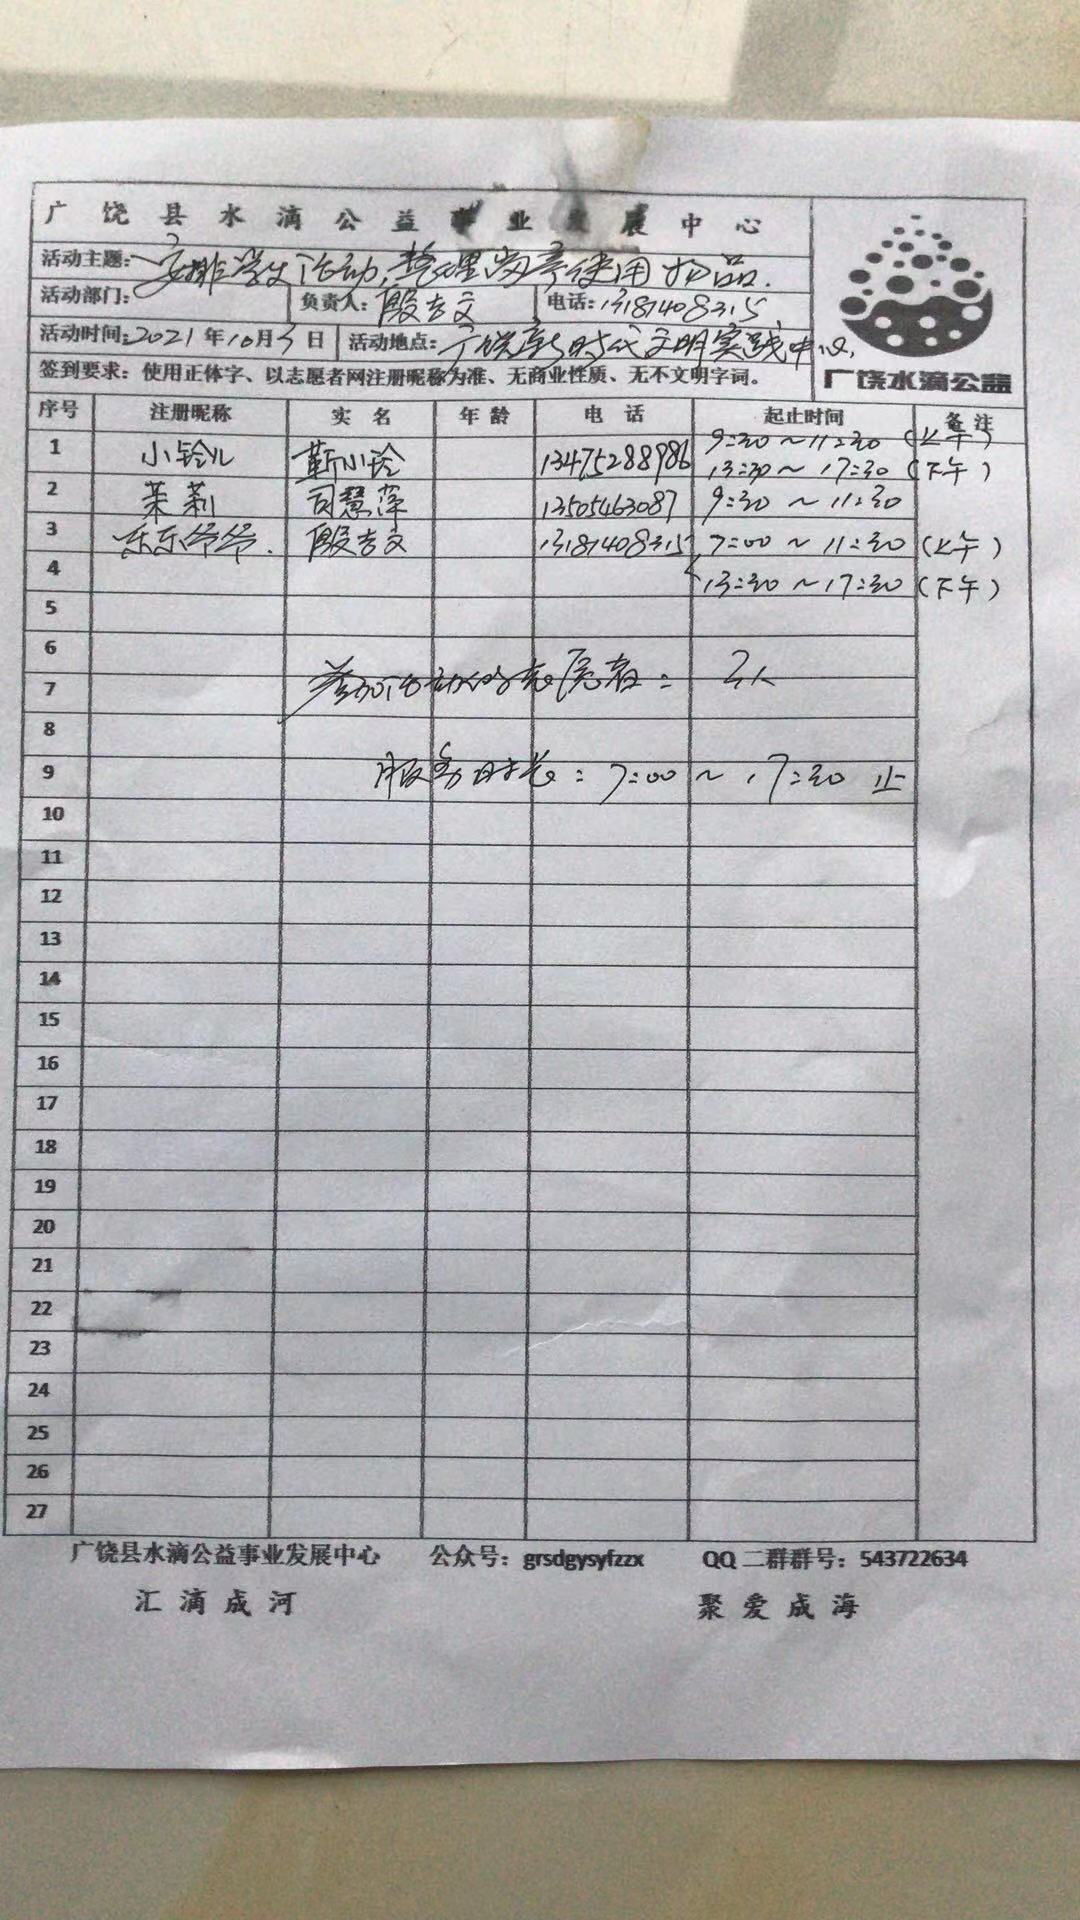 广饶县水滴公益事业发展中心
活动主题：安排学生活动，整理岗亭使用物品.
活动部门： 负责人：殷吉文 电话：13181408315
活动时间：2021年10月3日 活动地点：广饶新时代文明实践中心
签到要求：使用正体字、以志愿者网注册昵称为准、无商业性质、无不文明字词。
广饶水滴公益
序号 注册昵称 实名 年龄 电话 起止时间 备注
1 小铃儿 靳小玲 13475288986 9:30～11:30（上午）
13:30～17:30（下午）
2 茉莉 司慧萍 13505463087 9:30～11:30
3 乐乐爷爷. 殷吉文 13181408315 7:00～11:30（上午）
4 13:30～17:30（下午）
5
6
7 参加活动的志愿者：3人
8
9 服务时长：7:00～17:30止
10
11
12
13
14
15
16
17
18
19
20
21
22
23
24
25
26
27
广饶县水滴公益事业发展中心 公众号：grsdgysyfzzx QQ二群群号：543722634
汇滴成河 聚爱成海